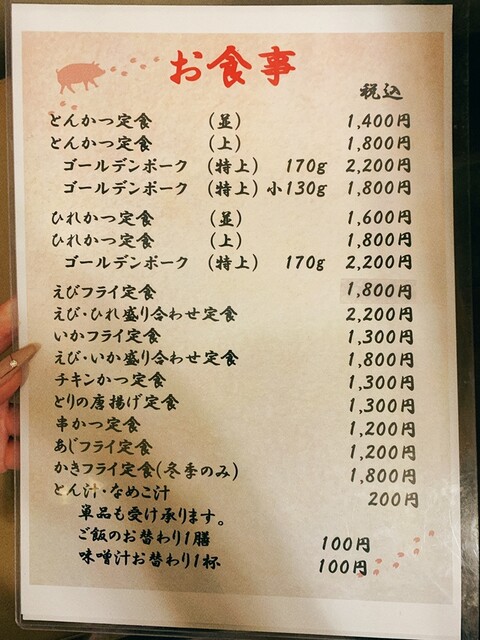 お食事
税込
とんかつ定食 (並) 1,400円
とんかつ定食 (上) 1,800円
ゴールデンポーク (特上) 170g 2,200円
ゴールデンポーク (特上) 小130g 1,800円
ひれかつ定食 (並) 1,600円
ひれかつ定食 (上) 1,800円
ゴールデンポーク (特上) 170g 2,200円
えびフライ定食 1,800円
えび・ひれ盛り合わせ定食 2,200円
いかフライ定食 1,300円
えび・いか盛り合わせ定食 1,800円
チキンかつ定食 1,300円
とりの唐揚げ定食 1,300円
串かつ定食 1,200円
あじフライ定食 1,200円
かきフライ定食(冬季のみ) 1,800円
とん汁・なめこ汁 200円
単品も受け承ります。
ご飯のお替わり1膳 100円
味噌汁お替わり1杯 100円